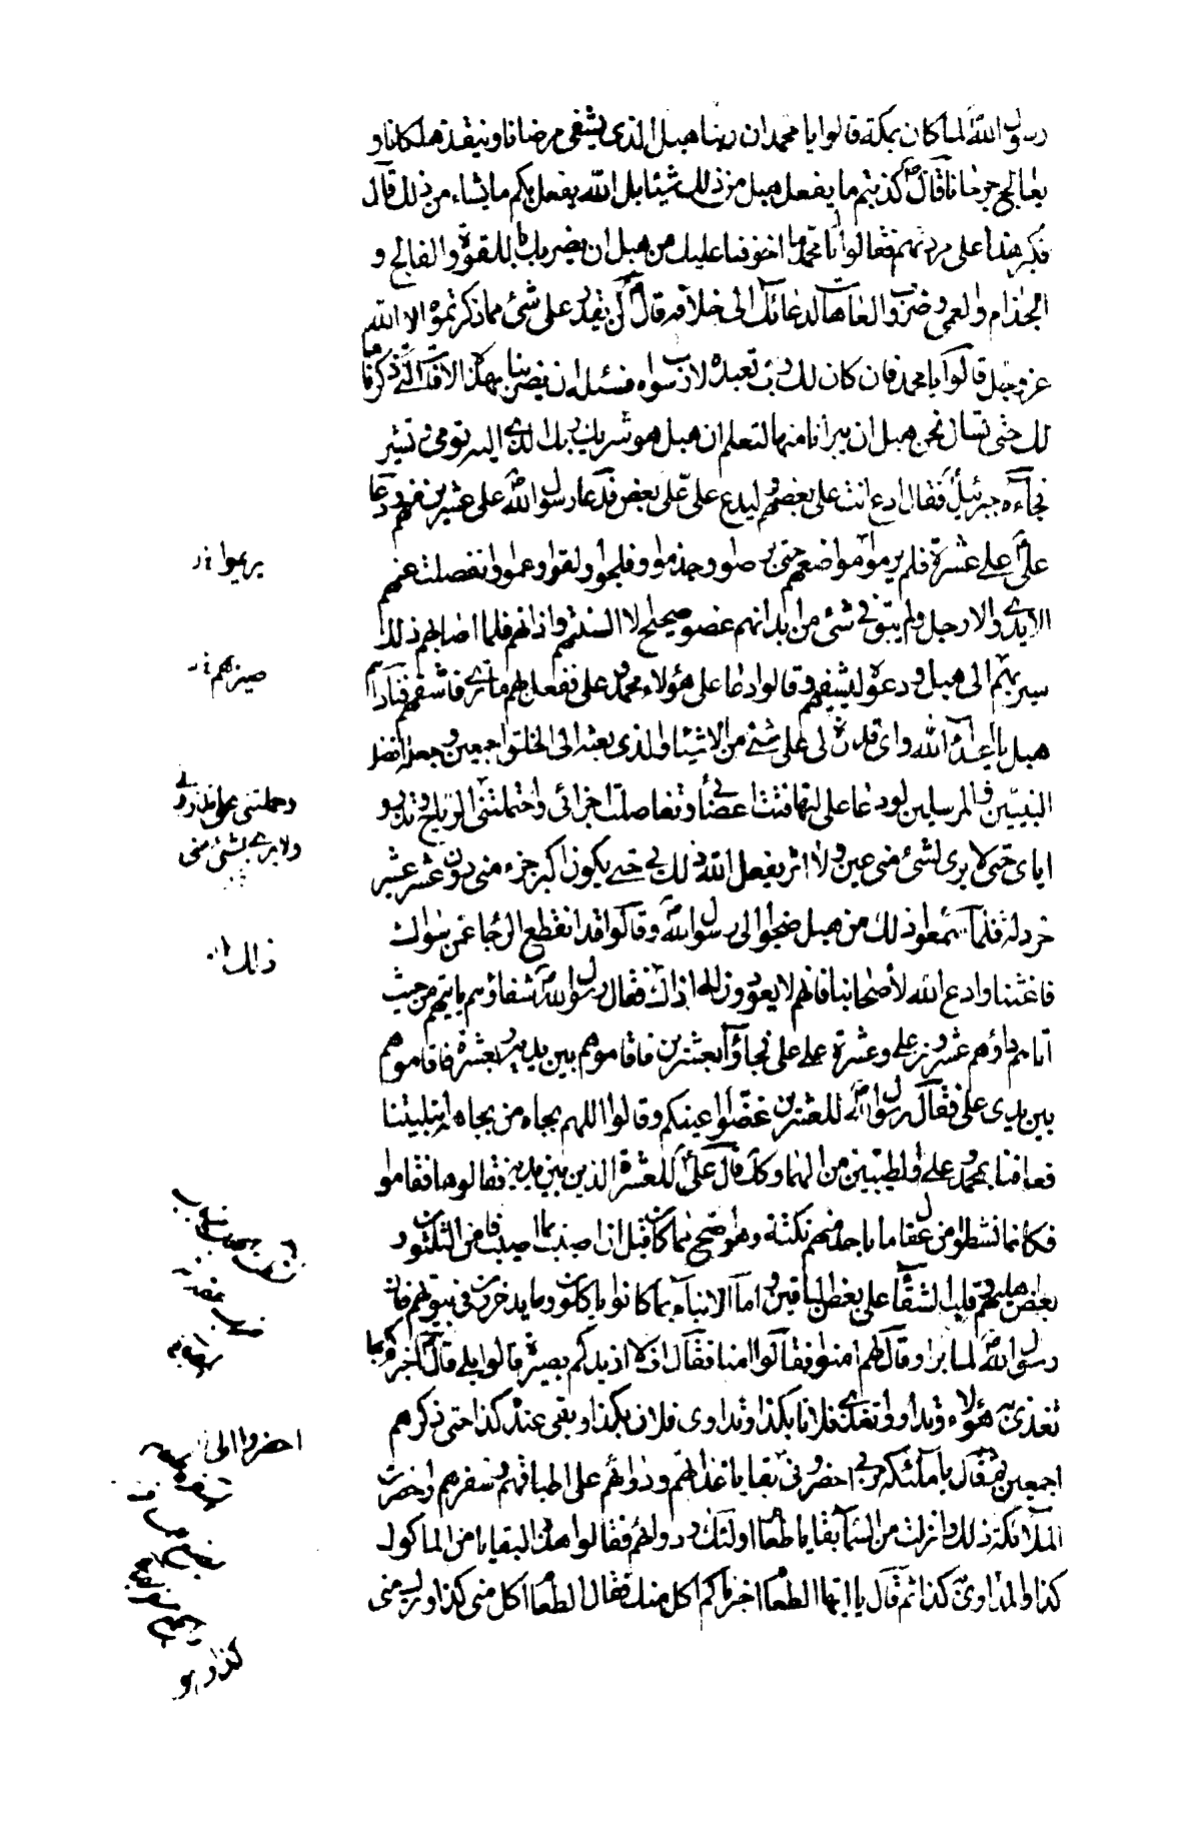 رسول الله لما كان بمكة قالوا يا محمد ان ربنا هبل الذي يشفي مرضانا وينقذ هلكانا و
يعالج جرحانا قال ص كذبتم ما يفعل هبل من ذلك شيئا بل الله يفعل بكم ما يشاء من ذلك قال
فكبر هذا على مردتهم فقالوا يا محمد ما اخوفنا عليك من هبل ان يضربك باللقوة والفالج و
الجذام والعمى وضروب العاهات لدعائك الى خلافه قال لن يقدر على شئ مما ذكرتموه الا الله
عز وجل قالوا يا محمد فان كان لك رب تعبده لا رب سواه فسئله ان يضربنا بهذه الافات التي ذكرتها
لك حتى نسال نحن هبل ان يبرانا منها لتعلم ان هبل هو شريك ربك الذي اليه تومي وتشير
فجاءه جبرئيل فقال ادع انت على بعضهم وليدع علي على بعض فدعا رسول الله على عشرين منهم ودعا
علي على عشرة فلم يرموا مواضعهم حتى برصوا وجذموا وفلجوا ولقوا وعموا وانفصلت عنهم
الايدي والارجل ولم يبق في شئ من ابدانهم عضو صحيح الا السنتهم واذانهم فلما اصابهم ذلك
سير بهم الى هبل ودعوه ليشفيهم وقالوا دعا على هؤلاء محمد وعلي ففعل بهم ما ترى فاشفهم فناداهم
هبل يا اعداء الله واي قدرة لي على شئ من الاشياء والذي بعثه الى الخلق اجمعين وجعله افضل
النبيين والمرسلين لو دعا علي لتهافتت اعضائي وتفاصلت اجزائي واحتملتني الرياح وتذرو
اياي حتى لا يرى لشئ مني عين ولا اثر يفعل الله ذلك بي حتى يكون اكبر جزء مني دون عشر عشير
خردلة فلما سمعوا ذلك من هبل ضجوا الى رسول الله وقالوا قد انقطع الرجا عمن سواك
فاغثنا وادع الله لأصحابنا فانهم لا يعودون الى اذاك فقال رسول الله شفاؤهم ياتيهم من حيث
اتاهم داؤهم عشرون علي وعشرة على علي فجاؤا بعشرين فاقاموهم بين يديه وبعشرة فاقاموهم
بين يدي علي فقال رسول الله للعشرين غضوا اعينكم وقولوا اللهم بجاه من بجاهه ابتليتنا
فعافنا بمحمد وعلي والطيبين من الهما وكذلك قال علي للعشرة الذين بين يديه فقالوها فقاموا
فكانما نشطوا من عقال ما باحد منهم نكتة وهو اصح مما كان قبل ان اصيب بما اصيب فامن الثلثون و
بعض اهليهم وغلب الشقاء على بعض الباقين واما الانباء بما كانوا ياكلون وما يدخرون في بيوتهم فان
رسول الله لما براوا قال لهم امنوا فقالوا امنا فقال الا ازيدكم بصيرة قالوا بلى قال اخبركم بما
تغذى به هؤلاء وتداووا تغدى فلان بكذا وتداوى فلان بكذا وبقى عنده كذا حتى ذكرهم
اجمعين ثم قال يا ملئكة ربي احضروني بقايا غذائهم ودوائهم على اطباقهم وسفرهم واحضرت
الملائكة ذلك وانزلت من السماء بقايا طعام اولئك ودوائهم فقالوا هذه البقايا من الماكول
كذا والمداوى به كذا ثم قال يا ايها الطعام اخبرنا كم اكل منك فقال الطعام اكل مني كذا وترك مني
يريموا خ ر
صيرهم خ ر
وحملتني على
ولا يرى بشئ مني
ذلك
احضروا الى
كذا وهو